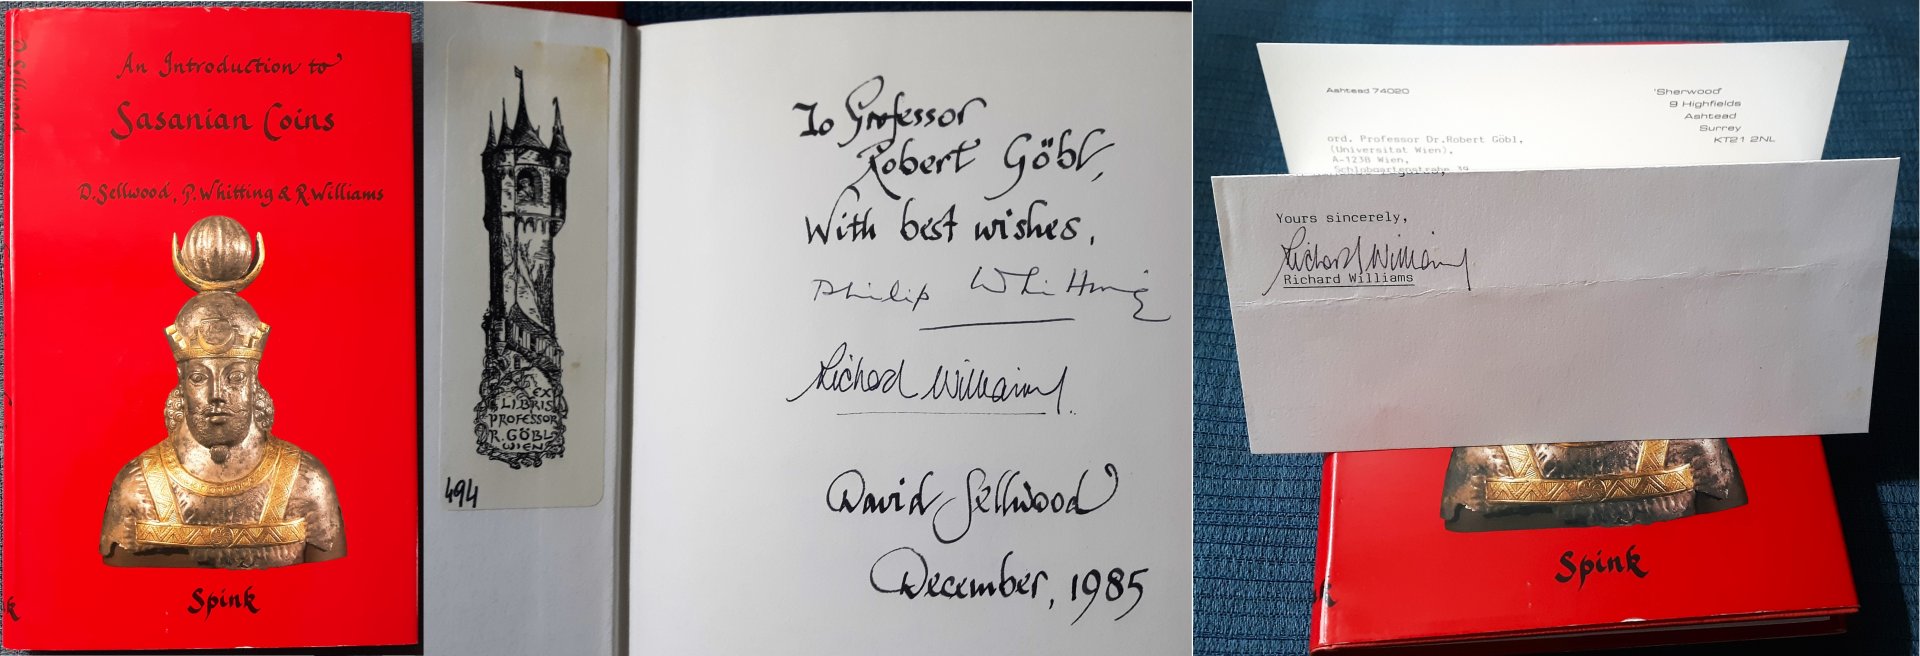 An Introduction to
Sasanian Coins
D. Sellwood, P. Whitting & R Williams
Spink
D. Sellwood
k
EX
LIBRIS
PROFESSOR
R. GÖBL
WIEN
494
To Professor
Robert Göbl,
With best wishes,
Philip Whitting
Richard Williams.
David Sellwood
December, 1985
Ashtead 74020
'Sherwood'
9 Highfields
Ashtead
Surrey
KT21 2NL
ord. Professor Dr.Robert Göbl,
(Universitat Wien),
A-1238 Wien,
Yours sincerely,
Richard Williams
Richard Williams
Spink
k